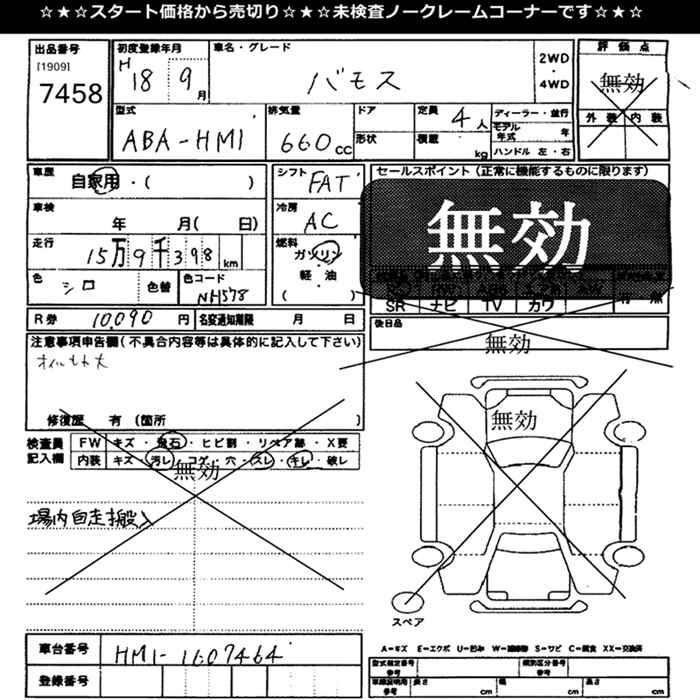 ☆★☆スタート価格から売切り☆★☆未検査ノークレームコーナーです☆★☆
出品番号
[1909]
7458
初度登録年月
H 18 9 月
車名・グレード
バモス
2WD
・
4WD
評価点
無効
外装 内装
型式
ABA-HM1
排気量
660cc
ドア
形状
定員 4人
積載 kg
ディーラー・並行
モデル年式 年
ハンドル 左・右
車歴
自家用・( )
車検
年 月( 日)
走行
15万9千398km
色
シロ
色替
色コード
NH578
シフト
FAT
冷房
AC
燃料
ガソリン
軽・油
( )
セールスポイント (正常に機能するものに限ります)
無効
SR ナビ TV カワ
R券 10,090 円 名変通知期限 月 日
後日品
無効
注意事項申告欄(不具合内容等は具体的に記入して下さい)
修復歴 有 (箇所 )
検査員
記入欄
FW キズ・飛石・ヒビ割・リペア跡・X要
内装 キズ・汚レ・コゲ・穴・スレ・キレ・破レ
無効
場内自走搬入
無効
スペア
A=キズ E=エクボ U=凹み W=補修跡 S=サビ C=腐食 XX=交換済
車台番号 HM1-1607464
登録番号
型式指定番号
参考
類別区分番号
参考
車検証明用
参考
長さ cm 幅 cm 高さ cm